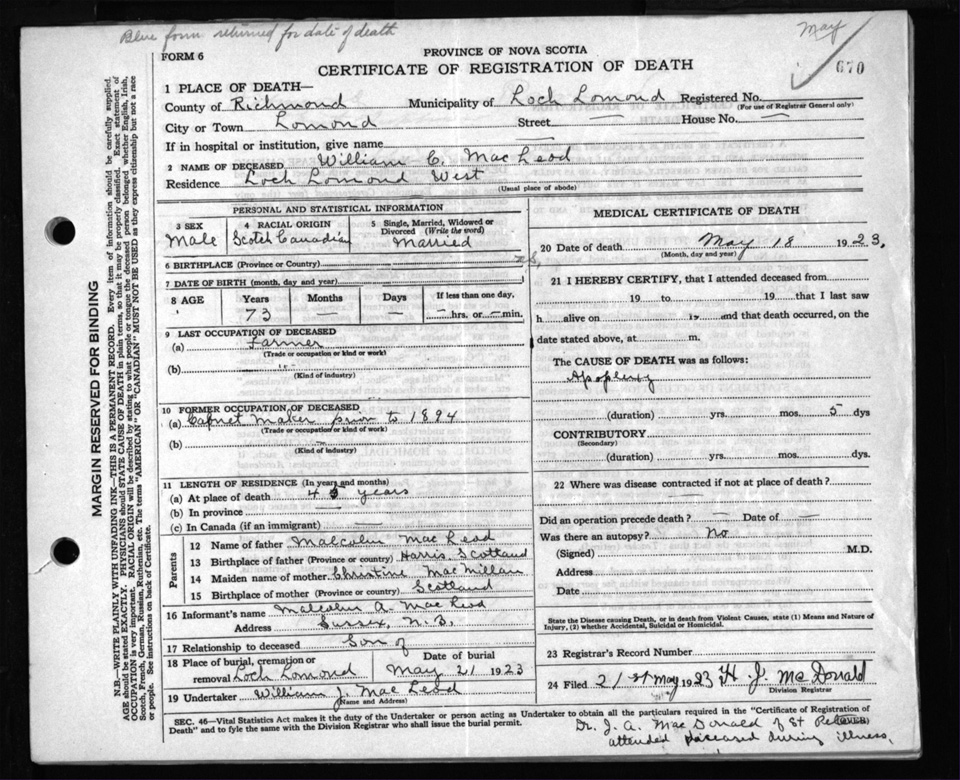 Blue form returned for date of death
May
FORM 6
PROVINCE OF NOVA SCOTIA
CERTIFICATE OF REGISTRATION OF DEATH
670
1 PLACE OF DEATH—
County of Richmond Municipality of Loch Lomond Registered No.
(For use of Registrar General only)
City or Town Lomond Street — House No. —
If in hospital or institution, give name —
2 NAME OF DECEASED William C. MacLeod
Residence Loch Lomond West
(Usual place of abode)
PERSONAL AND STATISTICAL INFORMATION
3 SEX 4 RACIAL ORIGIN 5 Single, Married, Widowed or Divorced (Write the word)
Male Scotch Canadian Married
6 BIRTHPLACE (Province or Country)
7 DATE OF BIRTH (month, day and year)
8 AGE Years Months Days If less than one day,
73 — — — hrs. or — min.
9 LAST OCCUPATION OF DECEASED
(a) Farmer
(Trade or occupation or kind of work)
(b)
(Kind of industry)
10 FORMER OCCUPATION OF DECEASED
(a) Cabnet Maker prior to 1894
(Trade or occupation or kind of work)
(b) —
(Kind of industry)
11 LENGTH OF RESIDENCE (In years and months)
(a) At place of death years
(b) In province —
(c) In Canada (if an immigrant) —
Parents
12 Name of father Malcolm MacLeod
13 Birthplace of father (Province or country) Harris Scotland
14 Maiden name of mother Christine MacMillan
15 Birthplace of mother (Province or country) Scotland
16 Informant's name Malcolm A. MacLeod
Address Sussex, N.B.
17 Relationship to deceased Son of
18 Place of burial, cremation or removal Loch Lomond Date of burial May 21 1923
19 Undertaker William J. MacLeod
(Name and Address)
MEDICAL CERTIFICATE OF DEATH
20 Date of death May 18 1923,
(Month, day and year)
21 I HEREBY CERTIFY, that I attended deceased from
19 to 19 that I last saw
h alive on 19 and that death occurred, on the
date stated above, at m.
The CAUSE OF DEATH was as follows:
Apoplexy
(duration) yrs. mos. 5 dys
CONTRIBUTORY
(Secondary)
(duration) yrs. mos. dys.
22 Where was disease contracted if not at place of death?
—
Did an operation precede death? — Date of —
Was there an autopsy? No
(Signed) M.D.
Address
Date
State the Disease causing Death, or in death from Violent Causes, state (1) Means and Nature of
Injury, (2) whether Accidental, Suicidal or Homicidal.
23 Registrar's Record Number
24 Filed 21st May 1923 H J McDonald
Division Registrar
SEC. 46—Vital Statistics Act makes it the duty of the Undertaker or person acting as Undertaker to obtain all the particulars required in the "Certificate of Registration of
Death" and to fyle the same with the Division Registrar who shall issue the burial permit.
Dr. J. A. MacDonald of St Peters
attended deceased during illness,
MARGIN RESERVED FOR BINDING
N.B.—WRITE PLAINLY WITH UNFADING INK—THIS IS A PERMANENT RECORD. Every item of information should be carefully supplied.
AGE should be stated EXACTLY. PHYSICIANS should STATE CAUSE OF DEATH in plain terms, so that it may be properly classified. Exact statement of
OCCUPATION is very important. RACIAL ORIGIN will be described by stating to what people or tongue the deceased person belonged whether English, Irish,
Scotch, French, German, Russian, Ruthenian, etc. The terms "AMERICAN" OR "CANADIAN" MUST NOT BE USED as they express citizenship but not a race
or people. See instructions on back of Certificate.